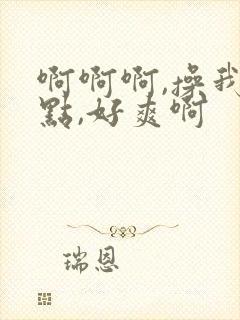 啊啊啊,操我
點,好爽啊
瑞恩